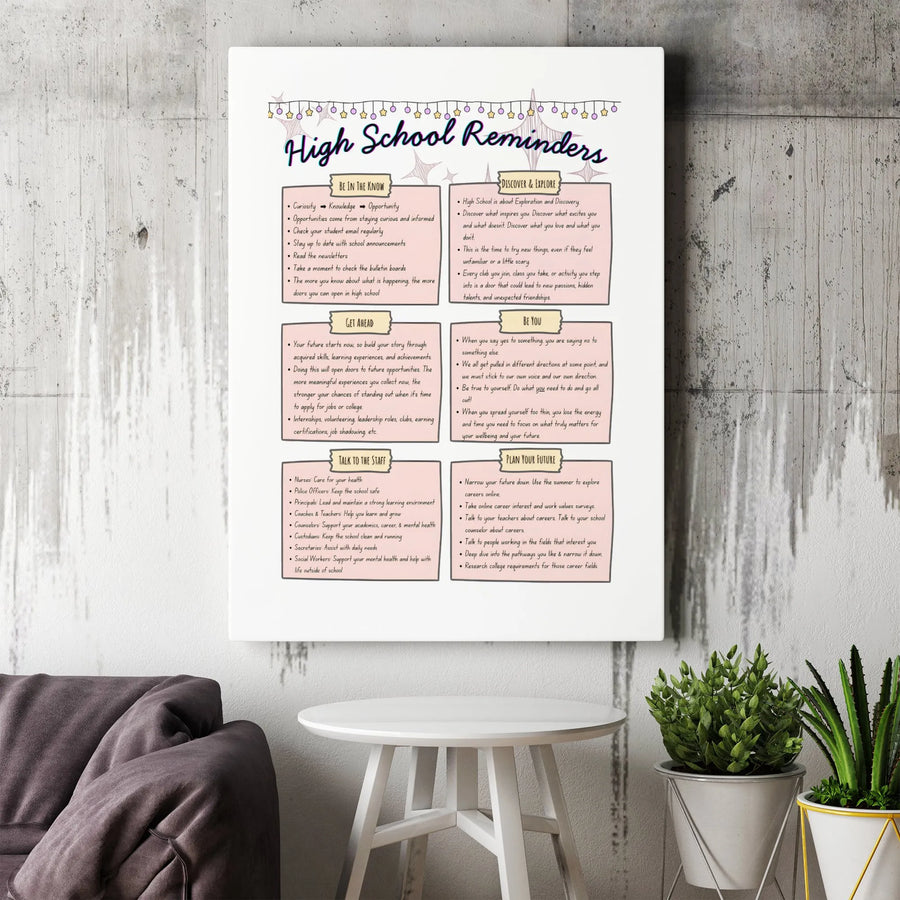 High School Reminders
Be In The Know
• Curiosity ➡ Knowledge ➡ Opportunity
• Opportunities come from staying curious and informed
• Check your student email regularly
• Stay up to date with school announcements
• Read the newsletters
• Take a moment to check the bulletin boards
• The more you know about what is happening, the more
doors you can open in high school
Discover & Explore
• High School is about Exploration and Discovery.
• Discover what inspires you. Discover what excites you
and what doesn't. Discover what you love and what you
don't.
• This is the time to try new things, even if they feel
unfamiliar or a little scary.
• Every club you join, class you take, or activity you step
into is a door that could lead to new passions, hidden
talents, and unexpected friendships.
Get Ahead
• Your future starts now, so build your story through
acquired skills, learning experiences, and achievements
• Doing this will open doors to future opportunities. The
more meaningful experiences you collect now, the
stronger your chances of standing out when it's time
to apply for jobs or college.
• Internships, volunteering, leadership roles, clubs, earning
certifications, job shadowing, etc.
Be You
• When you say yes to something, you are saying no to
something else.
• We all get pulled in different directions at some point, and
we must stick to our own voice and our own direction.
• Be true to yourself. Do what you need to do and go all
out!
• When you spread yourself too thin, you lose the energy
and time you need to focus on what truly matters for
your wellbeing and your future.
Talk to the Staff
• Nurses: Care for your health
• Police Officers: Keep the school safe
• Principals: Lead and maintain a strong learning environment
• Coaches & Teachers: Help you learn and grow
• Counselors: Support your academics, career, & mental health
• Custodians: Keep the school clean and running
• Secretaries: Assist with daily needs
• Social Workers: Support your mental health and help with
life outside of school
Plan Your Future
• Narrow your future down. Use the summer to explore
careers online.
• Take online career interest and work values surveys.
• Talk to your teachers about careers. Talk to your school
counselor about careers.
• Talk to people working in the fields that interest you
• Deep dive into the pathways you like & narrow it down.
• Research college requirements for those career fields